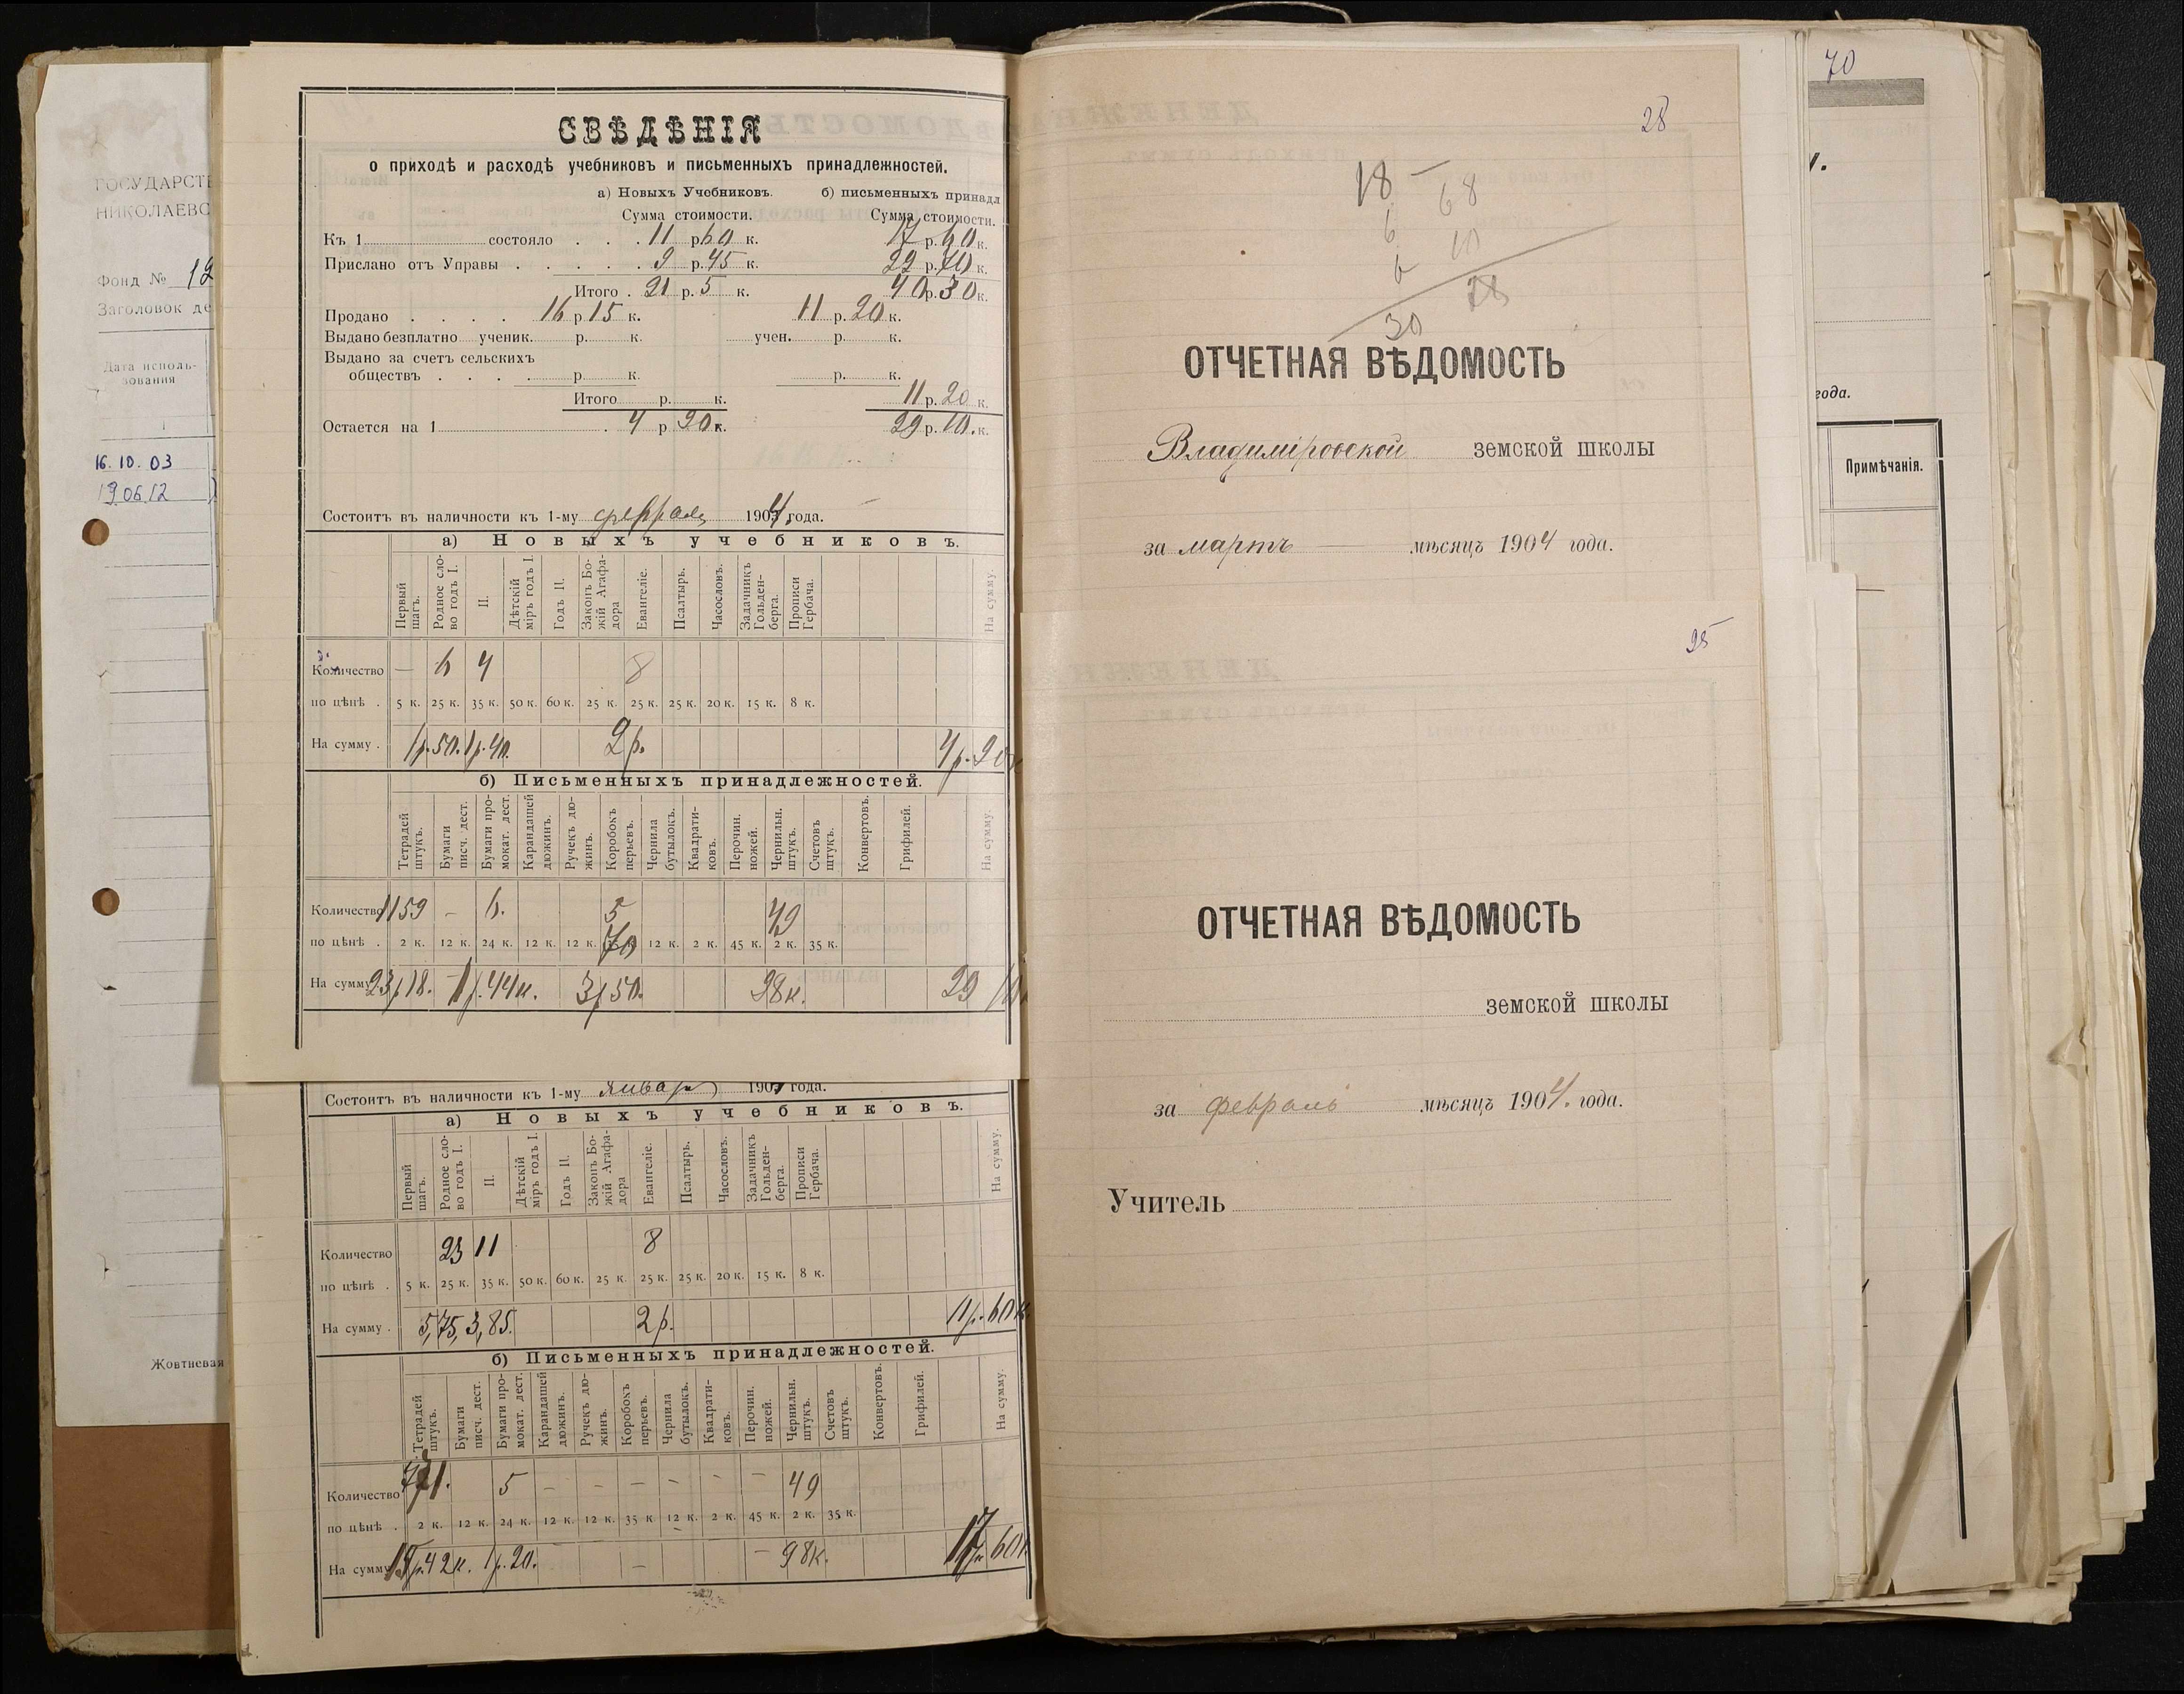 ГОСУДАРСТВ
НИКОЛАЕВС
Фонд № 12
Заголовок де
Дата исполь-
зования
16.10.03
19.06.12
Жовтневая
СВѢДѢНІЯ
о приходѣ и расходѣ учебниковъ и письменныхъ принадлежностей.
а) Новыхъ Учебниковъ. б) письменныхъ принадл
Сумма стоимости. Сумма стоимости.
Къ 1 состояло . . . 11 р 60 к. 17 р. 60 к.
Прислано отъ Управы . . . . . 9 р. 45 к. 22 р. 70 к.
Итого . 21 р. 5 к. 40 р. 30 к.
Продано . . . . 16 р 15 к. 11 р. 20 к.
Выдано безплатно ученик. р. к. учен. р. к.
Выдано за счетъ сельскихъ
обществъ . . . . р. к. р. к.
Итого р. к. 11 р. 20 к.
Остается на 1 . 4 р 90 к. 29 р. 10. к.
Состоитъ въ наличности къ 1-му февраль 1904 года.
а) Новыхъ учебниковъ.
Первый шагъ. Родное сло- во годъ I. II. Дѣтскій міръ годъ I Годъ II. Законъ Бо- жій Агафа- дора Евангеліе. Псалтырь. Часословъ. Задачникъ Гольден- берга. Прописи Гербача. На сумму.
Количество — 6 4 8
по цѣнѣ . 5 к. 25 к. 35 к. 50 к. 60 к. 25 к. 25 к. 25 к. 20 к. 15 к. 8 к.
На сумму . 1р.50. 1р.40. 2р. 4р.90к
б) Письменныхъ принадлежностей.
Тетрадей штукъ. Бумаги писч. дест. Бумаги про- мокат. дест. Карандашей дюжинъ. Ручекъ дю- жинъ. Коробокъ перьевъ. Чернила бутылокъ. Квадрати- ковъ. Перочин. ножей. Чернильн. штукъ. Счетовъ штукъ. Конвертовъ. Грифилей. На сумму.
Количество 1159 – 6. 5 49
по цѣнѣ . 2 к. 12 к. 24 к. 12 к. 12 к. 70 12 к. 2 к. 45 к. 2 к. 35 к.
На сумму 23р18. – 1р.44к. 3р50. 98к. 29 10
Состоитъ въ наличности къ 1-му январь 1904 года.
а) Новыхъ учебниковъ.
Первый шагъ. Родное сло- во годъ I. II. Дѣтскій міръ годъ I. Годъ II. Законъ Бо- жій Агафа- дора Евангеліе. Псалтырь. Часословъ. Задачникъ Гольден- берга. Прописи Гербача. На сумму.
Количество 23 11 8
по цѣнѣ . 5 к. 25 к. 35 к. 50 к. 60 к. 25 к. 25 к. 25 к. 20 к. 15 к. 8 к.
На сумму . 5,75, 3,85. 2р. 11р.60к
б) Письменныхъ принадлежностей.
Тетрадей штукъ. Бумаги писч. дест. Бумаги про- мокат. дест. Карандашей дюжинъ. Ручекъ дю- жинъ. Коробокъ перьевъ. Чернила бутылокъ. Квадрати- ковъ. Перочин. ножей. Чернильн. штукъ. Счетовъ штукъ. Конвертовъ. Грифилей. На сумму.
Количество 771. 5 – – – – – – 49
по цѣнѣ . 2 к. 12 к. 24 к. 12 к. 12 к. 35 к 12 к. 2 к. 45 к. 2 к. 35 к.
На сумму 15р42к. 1р.20. – – 98к. 17р.60к
28
18 – 68
6 10
6 78
30
ОТЧЕТНАЯ ВѢДОМОСТЬ
Владиміровской земской школы
за мартъ мѣсяцъ 1904 года.
25
ОТЧЕТНАЯ ВѢДОМОСТЬ
земской школы
за февраль мѣсяцъ 1904. года.
Учитель
70
года.
Примѣчанія.